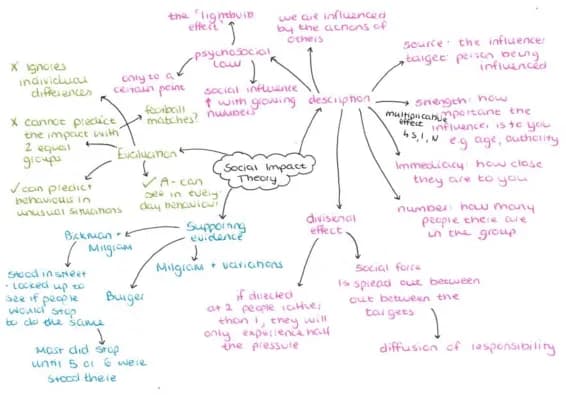 the "lightbulb
effect"
we are influenced
by the actions of
others
psychosocial
law
only to a
certain point
social influence
↑ with growing
numbers
description
source: the influencer
target: person being
influenced
strength: how
important the
influencer is to you
e.g age, authority
multiplicative
effect
↳ S, I, N
immediacy: how close
they are to you
number: how many
people there are
in the group
✗ ignores
individual
differences
✗ cannot predict
the impact with
2 equal
groups
football
matches?
Evaluation
✓ can predict
behaviour in
unusual situations
✓ A - can
see in every-
day behaviour
Social Impact
Theory
Supporting
evidence
Bickman +
Milgram
Stood in street
- looked up to
see if people
would stop
to do the same
Most did stop
until 5 or 6 were
stood there
Burger
Milgram + variations
divisional
effect
if directed
at 2 people rather
than 1, they will
only experience half
the pressure
social force
is spread out between
out between the
targets
diffusion of responsibility